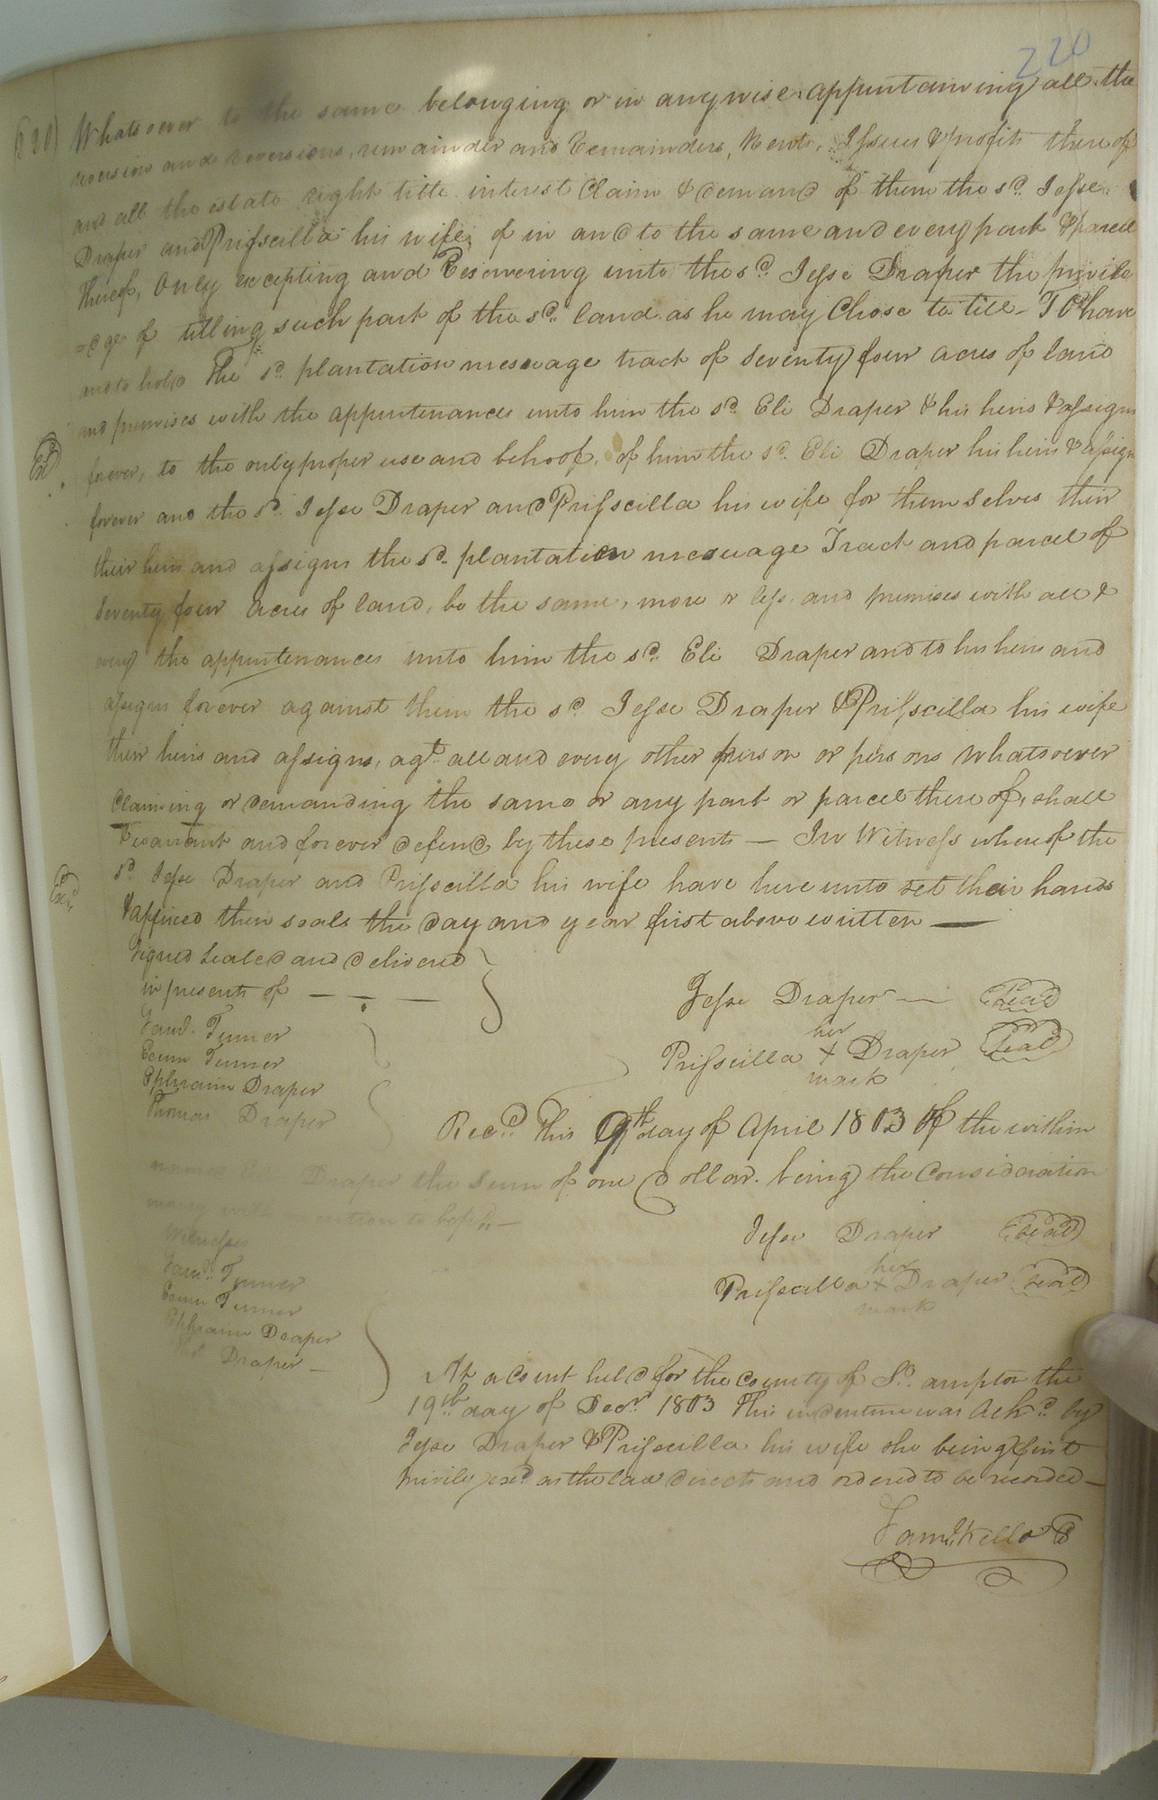 220
220) Whatsoever to the same belonging or in anywise appurtaining all the
revercion and reversions, remainder and Remainders, Rents, Issues & profits there of
and all the estate right title interest Claim & demand of them the sd. Jesse
Draper and Prisscilla his wife, of in and to the same and every part & parcel
thereof, Only excepting and Resirvering unto the sd. Jesse Draper the privile
=edge of tilling such part of the sd. land as he may Chose to till - TO have
and to hold The sd. plantation mesuage tract of Seventy four acres of land
and premises with the appurtenances unto him the sd. Eli Draper & his heirs & assigns
forever, to the only proper use and behoof, of him the sd. Eli Draper his heirs & assigns
forever and the sd. Jesse Draper and Prisscilla his wife for themselves their
their heirs and assigns the sd. plantation mesuage Tract and parcel of
Seventy four acres of land, be the same, more or less and premises with all &
every the appurtenances unto him the sd. Eli Draper and to his heirs and
assigns forever against them the sd. Jesse Draper & Prisscilla his wife
their heirs and assigns, agt. all and every other person or persons Whatsoever
Claiming or demanding the same or any part or parcel there of, shall
and forever defend by these presents — In Witness where of the
sd. Jesse Draper and Prisscilla his wife have here unto set their hands
& affixed their seals the day and year first above written —
Signed Sealed and delivered
in presents of — — —
Jesse Draper — Seal
Turner
her
Turner
Prisscilla + Draper Seal
Ephraim Draper
mark
Thomas Draper
Recd. this 9th day of April 1803 Of the within
named Eli Draper the Sum of one dollar being the Consideration
Witnesses
Jesse Draper Seal
Turner
her
Turner
Prisscilla + Draper Seal
Ephraim Draper
mark
Draper —
At a Court held for the County of So. ampton the
19th day of Decr. 1803 This indenture was Ackd. by
Jesse Draper & Prisscilla his wife she being first
privily exd. as the law directs and ordered to be recorded —
Saml. Kello